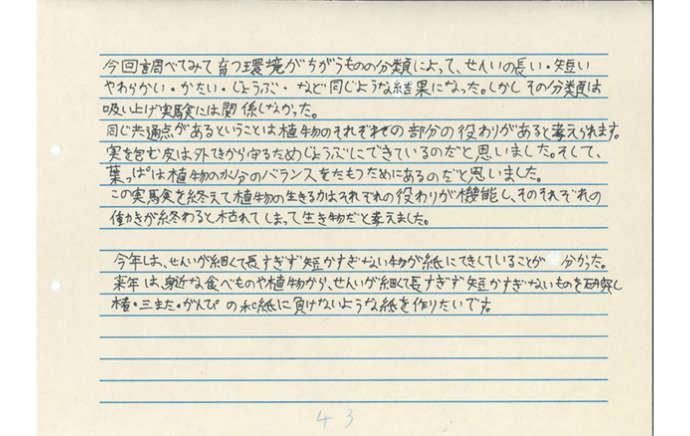 今回調べてみて育つ環境がちがうものの分類によって、せんいの長い・短い
やわらかい・かたい・じょうぶ・など同じような結果になった。しかしその分類は
吸い上げ実験には関係しなかった。
同じ共通点があるということは植物のそれぞれの部分の役わりがあると考えられます。
実を包む皮は外てきから守るためじょうぶにできているのだと思いました。そして、
葉っぱは植物の水分のバランスをたもつためにあるのだと思いました。
この実験を終えて植物の生きる力はそれぞれの役わりが機能し、そのそれぞれの
働きが終わると枯れてしまって生き物だと考えました。
今年は、せんいが細くて長すぎず短かすぎない物が紙にてきしていることが分かった。
来年は、身近な食べものや植物から、せんいが細くて長すぎず短かすぎないものを研究し
楮・三また・がんぴの和紙に負けないような紙を作りたいです。
43